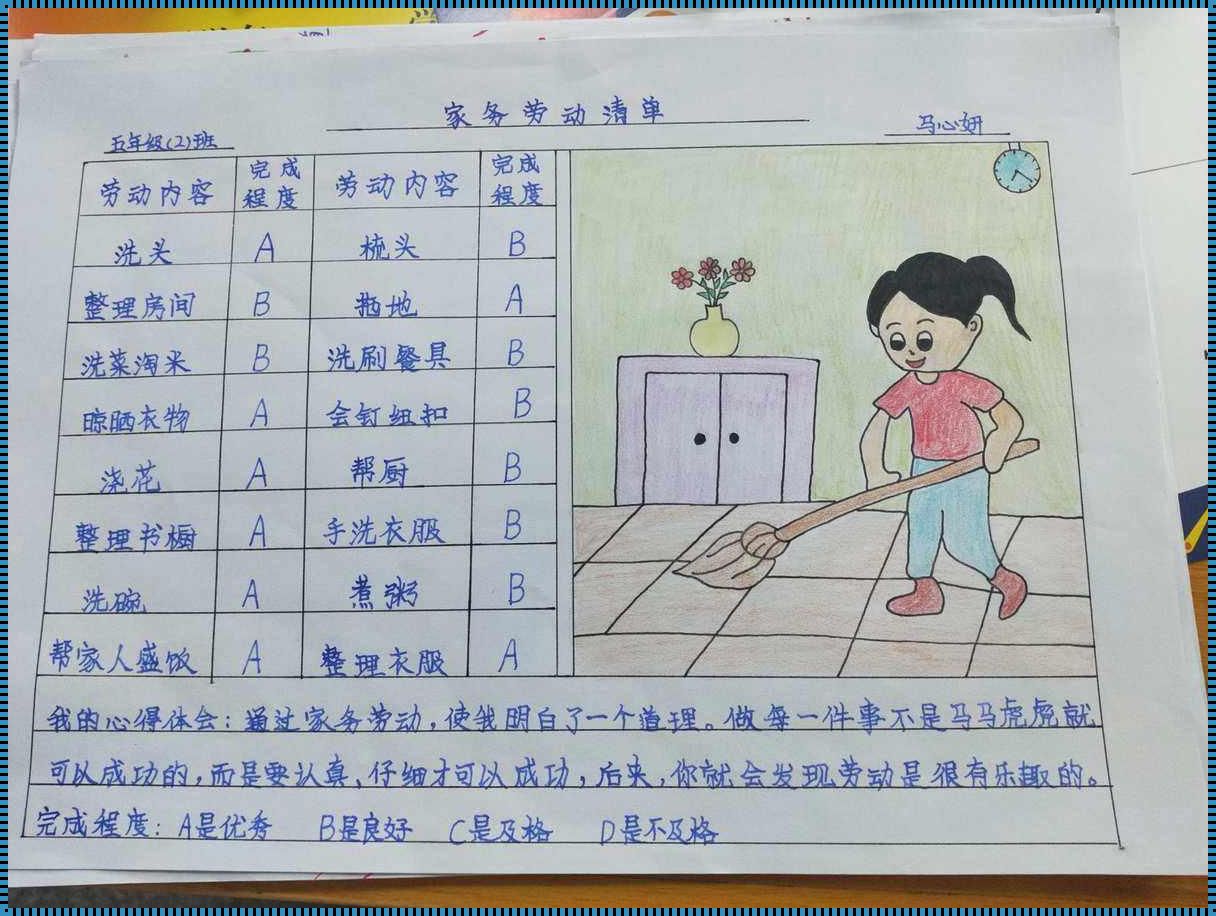 家务劳动清单
五年级(2)班
马心妍
劳动内容 完成程度 劳动内容 完成程度
洗头 A 梳头 B
整理房间 B 拖地 A
洗菜淘米 B 洗刷餐具 B
晾晒衣物 A 会钉纽扣 B
浇花 A 帮厨 B
整理书橱 A 手洗衣服 B
洗碗 A 煮粥 B
帮家人盛饭 A 整理衣服 A
我的心得体会：通过家务劳动，使我明白了一个道理。做每一件事不是马马虎虎就
可以成功的，而是要认真、仔细才可以成功，后来，你就会发现劳动是很有乐趣的。
完成程度：A是优秀 B是良好 C是及格 D是不及格